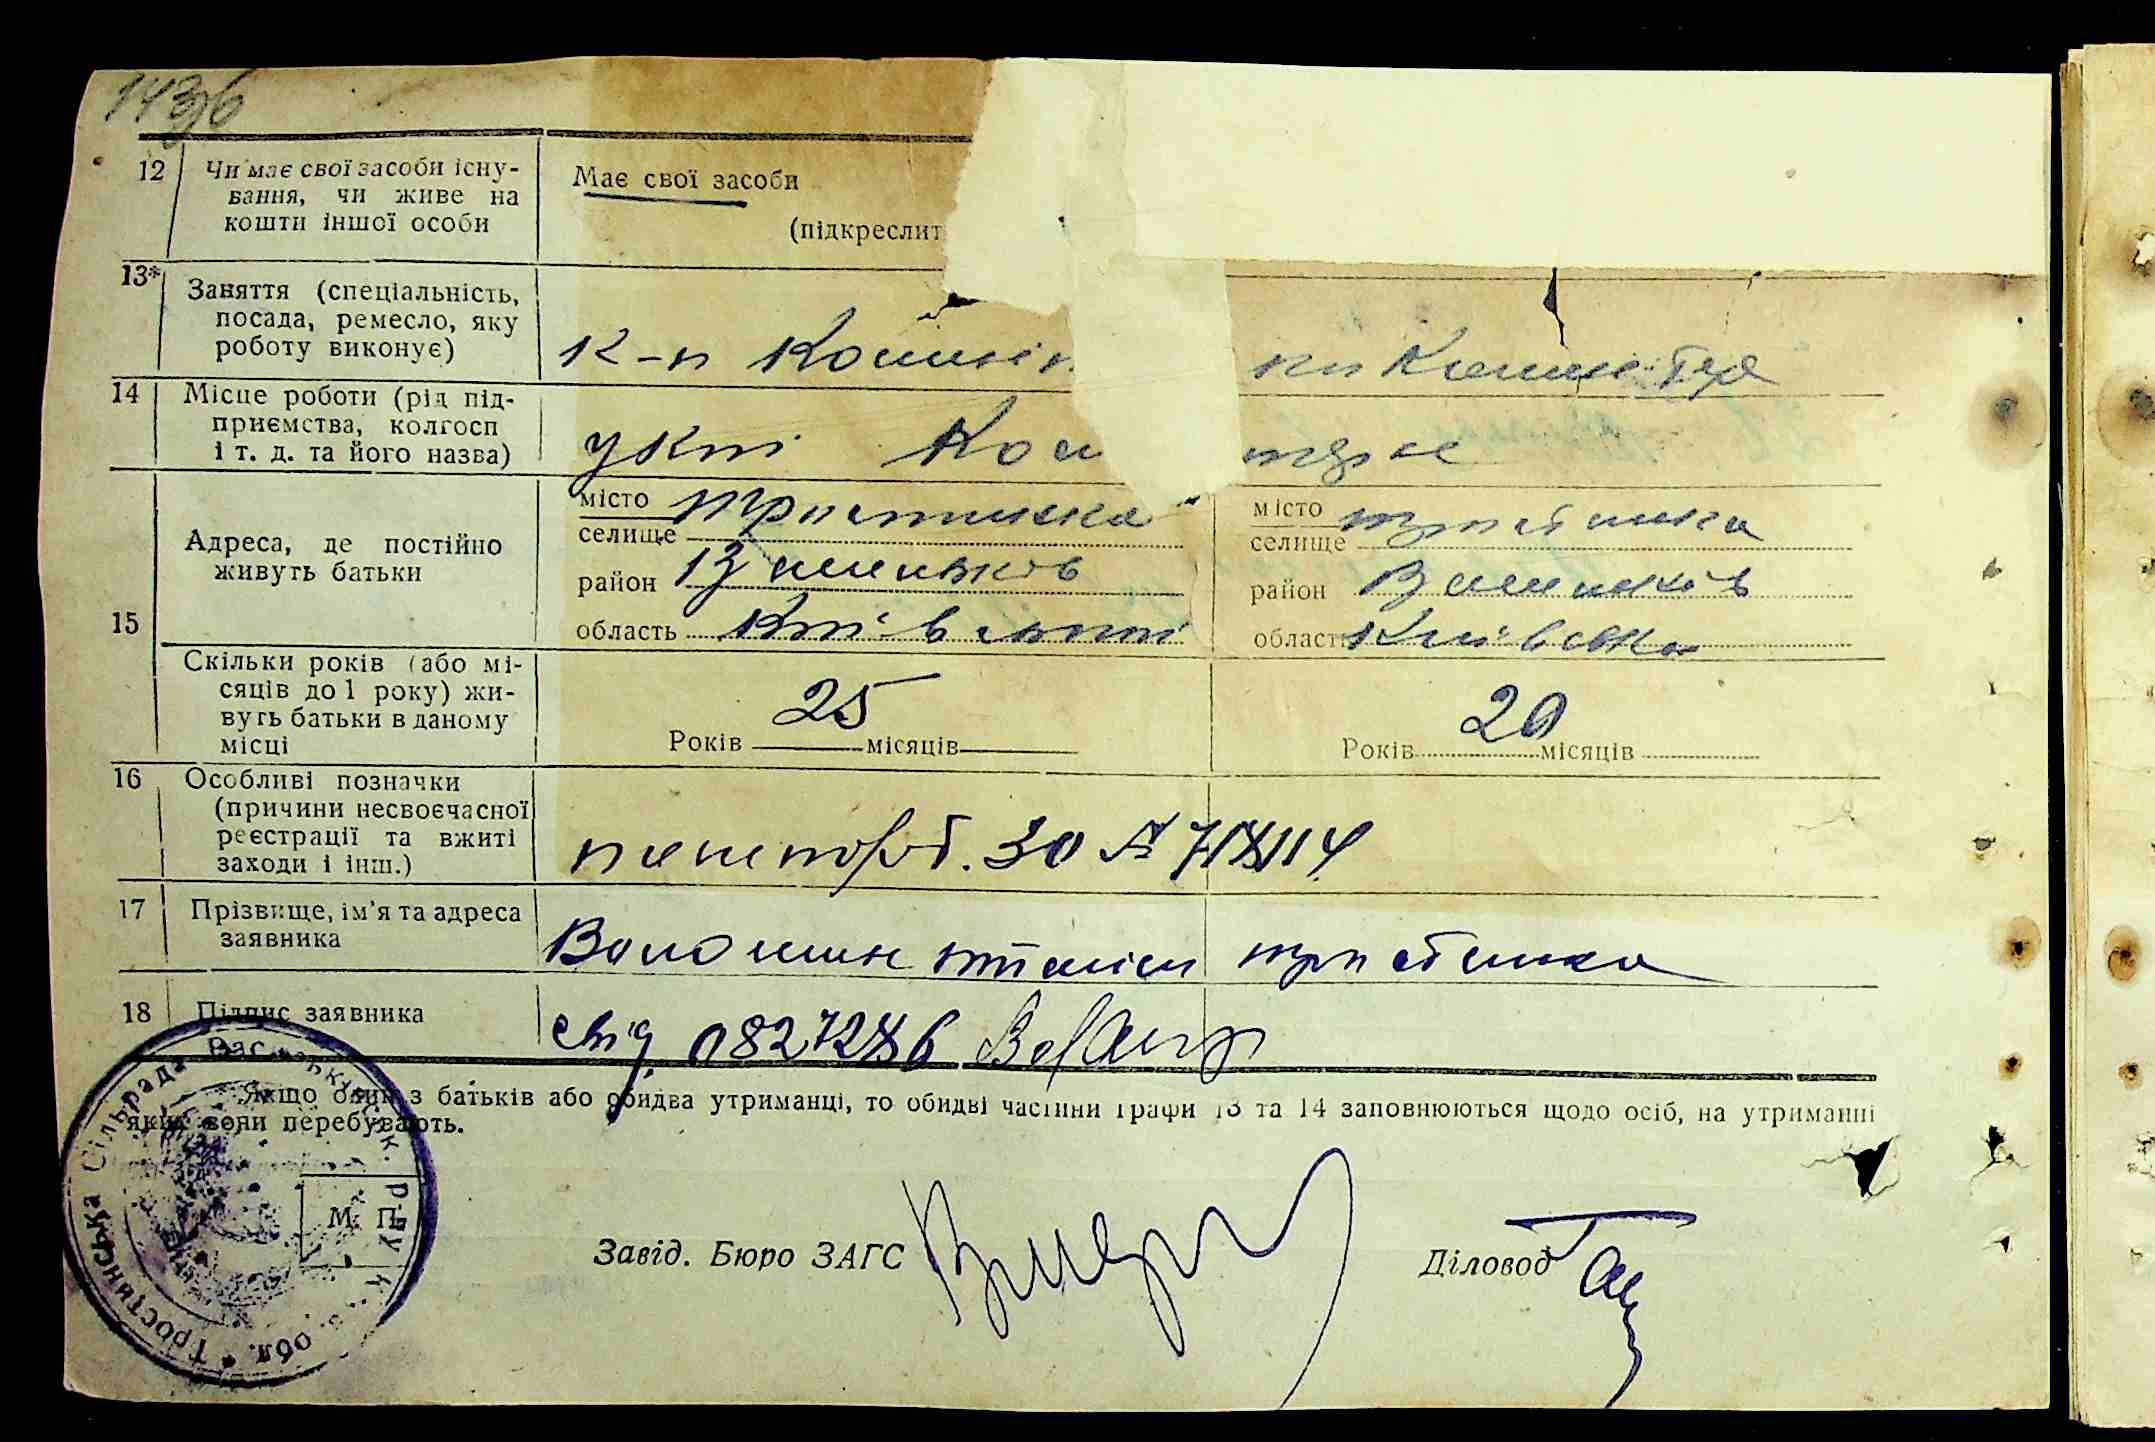 1436
12 Чи має свої засоби існу-
вання, чи живе на
кошти іншої особи
Має свої засоби
(підкреслит
13* Заняття (спеціальність,
посада, ремесло, яку
роботу виконує)
к-п
14 Місце роботи (рід під-
приємства, колгосп
і т. д. та його назва)
15 Адреса, де постійно
живуть батьки
місто Тростинка
селище
район Васильків
область Київської
місто Тростинка
селище
район Васильків
область Київська
Скільки років (або мі-
сяців до 1 року) жи-
вуть батьки в даному
місці
Років 25 місяців
Років 20 місяців
16 Особливі позначки
(причини несвоєчасної
реєстрації та вжиті
заходи і інш.)
паспорт. 30
17 Прізвище, ім'я та адреса
заявника
Волошин Тростинка
18 Підпис заявника
свід.
Якщо один з батьків або обидва утриманці, то обидві частини графи 13 та 14 заповнюються щодо осіб, на утриманні
яких вони перебувають.
Тростинська Сільрада Васильківськ. р-ну К. обл.
М. П.
Завід. Бюро ЗАГС
Діловод